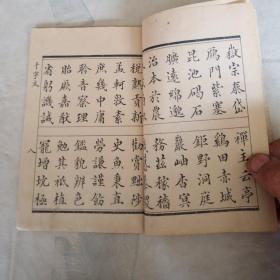 嶽宗泰岱
禪主云亭
鴈門紫塞
雞田赤城
昆池碣石
鉅野洞庭
曠遠緜邈
巖岫杳冥
治本於農
務茲稼穡
稅熟貢新
勸賞黜陟
孟軻敦素
史魚秉直
庶幾中庸
勞謙謹勅
聆音察理
鑑貌辨色
貽厥嘉猷
勉其祗植
省躬譏誡
寵增抗極
千字文
八